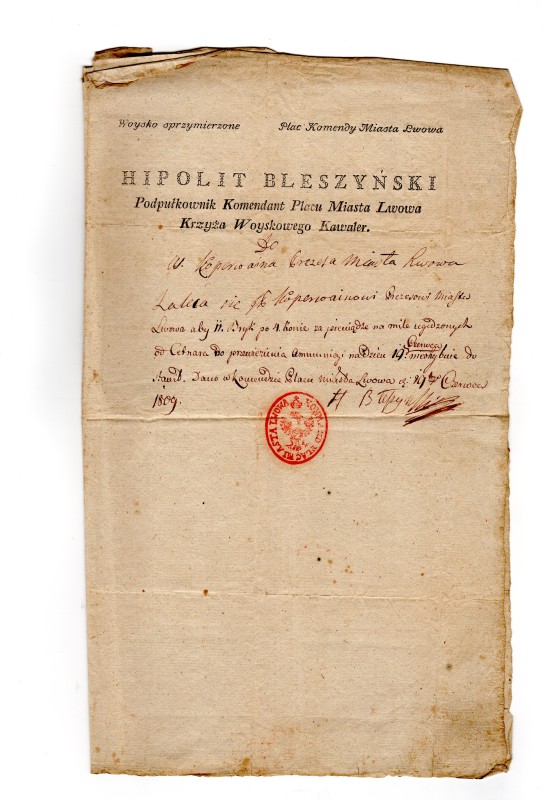 Woysko sprzymierzone Plac Komendy Miasta Lwowa
HIPOLIT BLESZYŃSKI
Podpułkownik Komendant Placu Miasta Lwowa
Krzyża Woyskowego Kawaler.
Do
W. Koperwaina Prezesa Miasta Lwowa
Zaleca się JP Koperwainowi Prezesowi Miasta
Lwowa aby 11. Bryk po 4 Konie za pieniądze na milę ugodzonych
od Cetnara do przewiezienia Amunicyi na dzień 19 Czerwca niechybnie do
stawił. Dano w Komendzie Placu miasta Lwowa d: Czerwca
1809.
H Błeszyński
KOMMEND PLAC MIASTA LWOWA